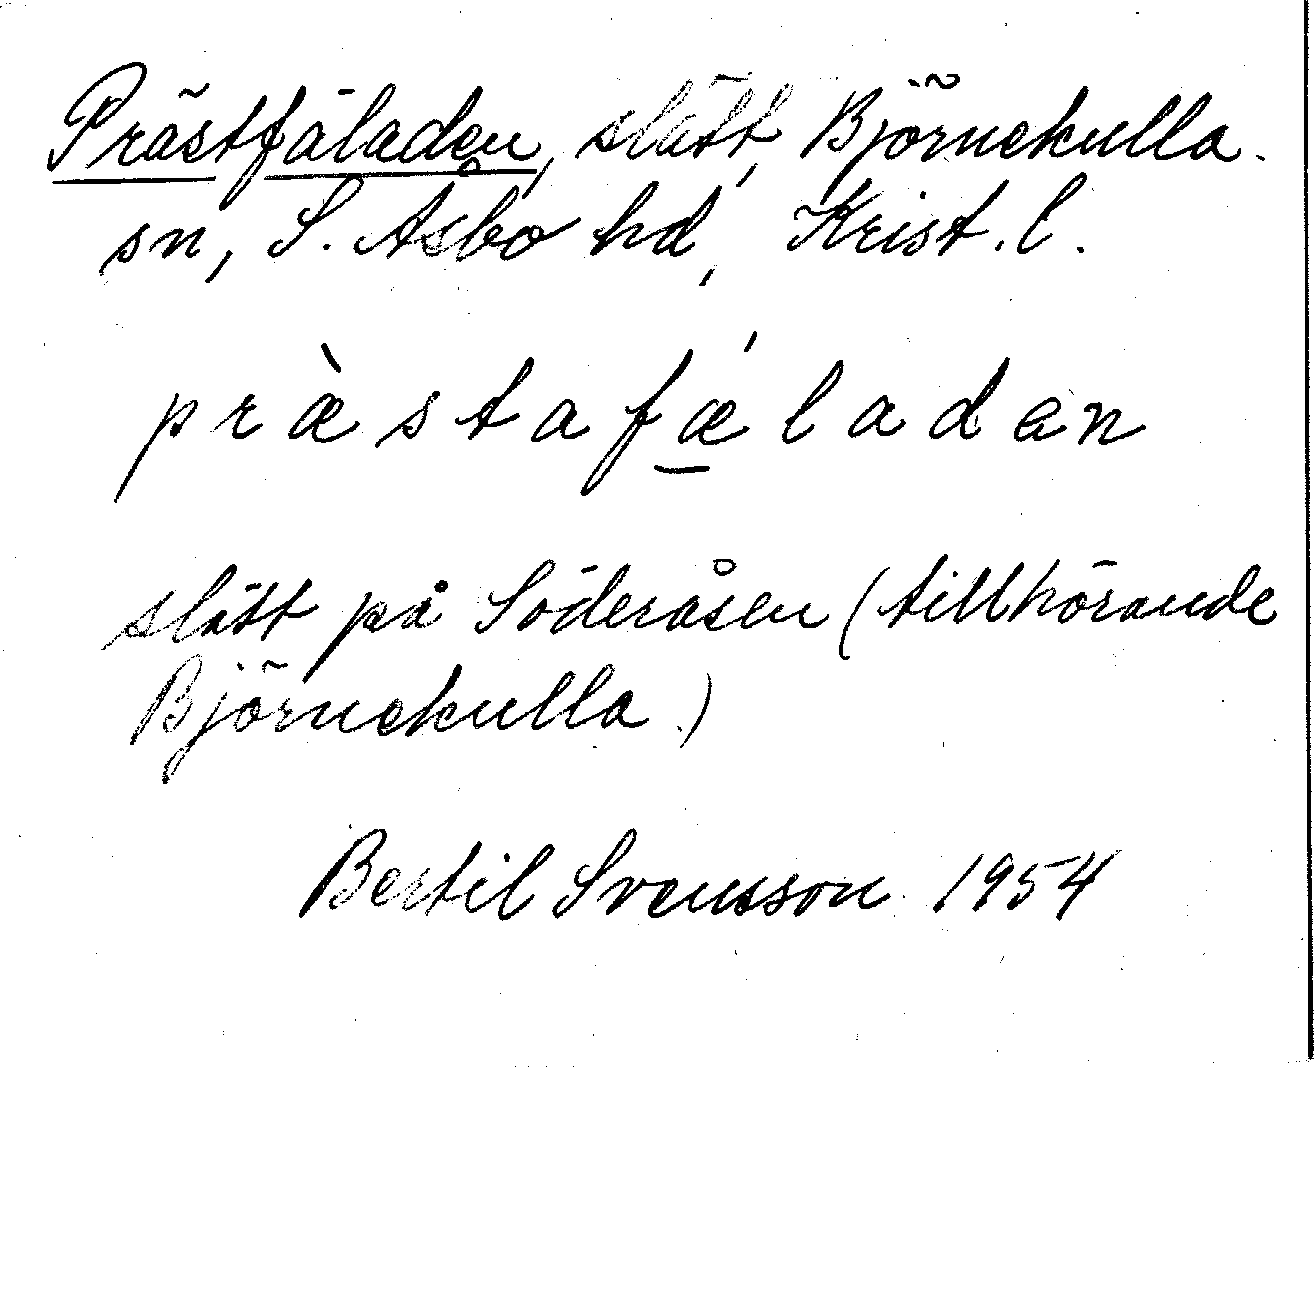 Prästfäladen, slätt, Björnekulla
sn, S. Åsbo hd, Krist. l.
præ̀stafǽ̱ladən
slätt på Söderåsen (tillhörande
Björnekulla.)
Bertil Svensson 1954